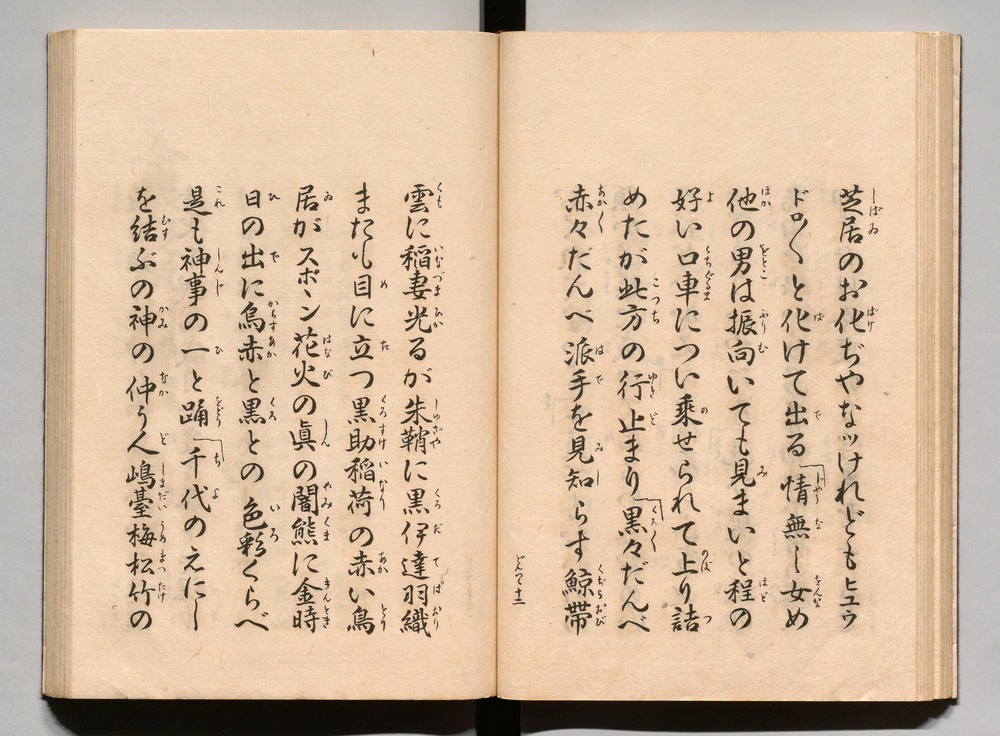 芝居のお化ぢやなッけれどもヒユウ
ドロ〱と化けて出る「情無し女め
他の男は振向いても見まいと程の
好い口車につい乗せられて上り詰
めたが此方の行止まり「黒々だんべ
赤々だんべ派手を見知らす鯨帯
雲に稲妻光るが朱鞘に黒伊達羽織
またも目に立つ黒助稲荷の赤い鳥
居がスポン花火の眞の闇熊に金時
日の出に烏赤と黒との色彩くらべ
是も神事の一と踊「千代のえにし
を結ぶの神の仲うど嶋臺梅松竹の